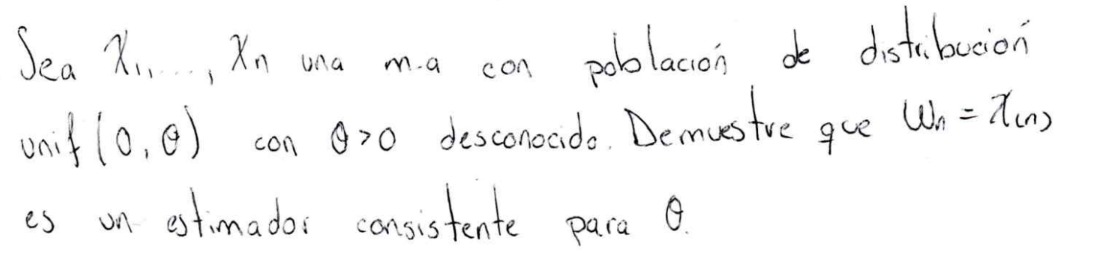 Sea X₁,..., Xn una m.a con población de distribución
unif (0, θ) con θ>0 desconocido. Demuestre que Wn = X(n)
es un estimador consistente para θ.